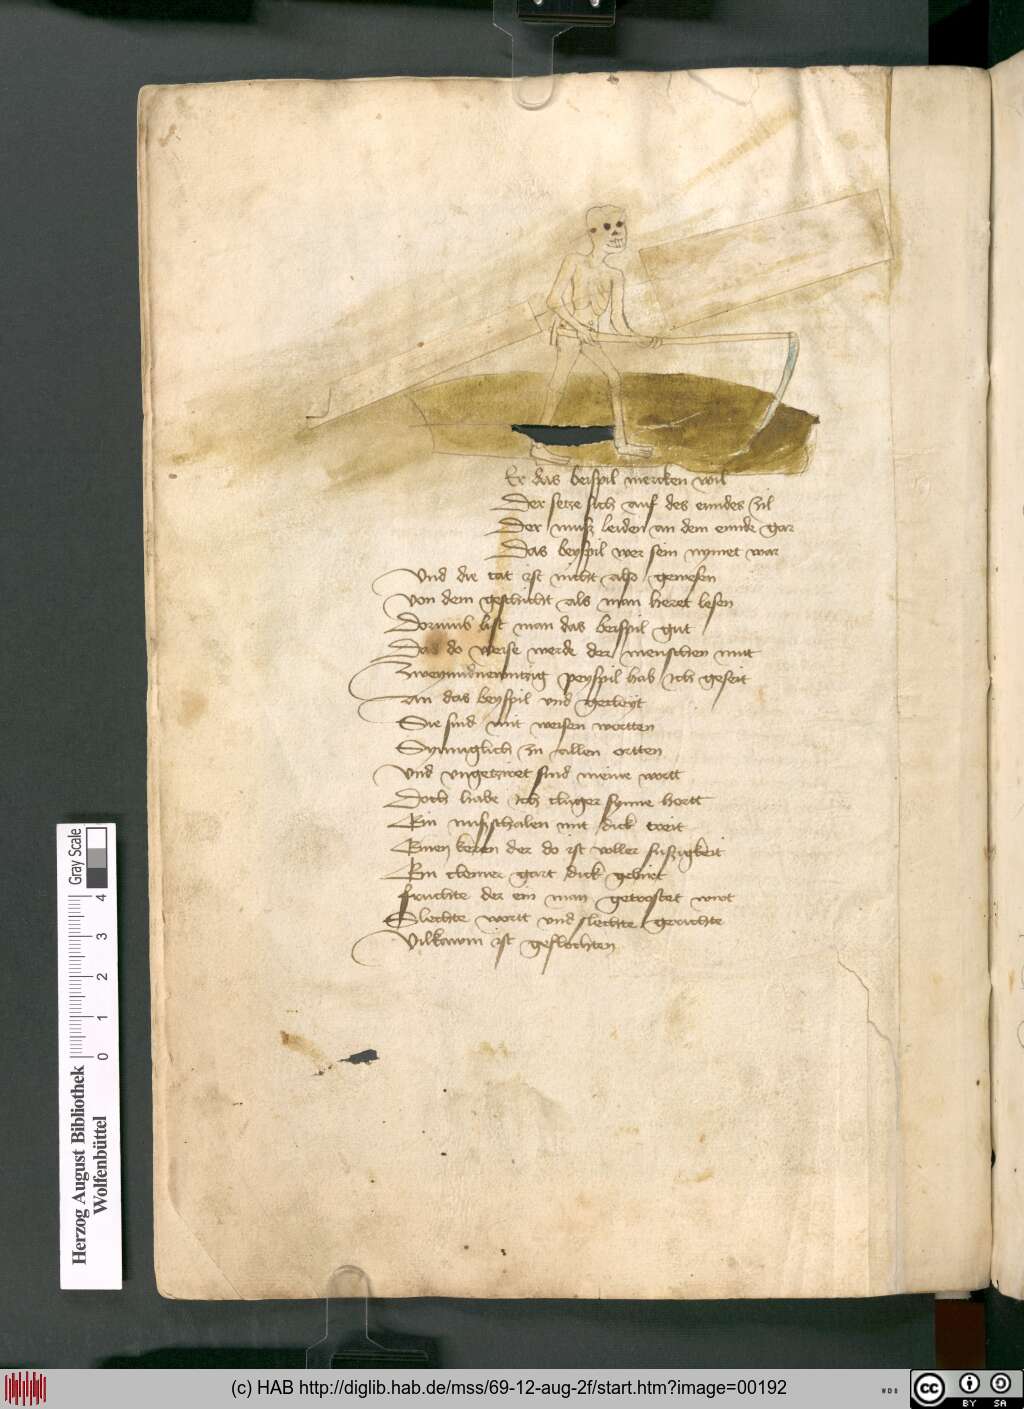 Er das beispil mercken wil
Der setze sich auf des enndes zil
Der nutz leiden an dem ennde gar
Das beyspil wer sein nymet war
Und die tat ist nicht also gewesen
Von dem geschicht als man heret lesen
Dorumb list man das beispil gut
Das do weise werde der menschen mut
Zweyundnewntzig peyspil hab ich geseit
An das beyspil und geleyt
Sie sind mit weisen wortten
Synniglich zu allen ortten
Und ungetziret sind meine wortt
Doch habe ich cluger synne hortt
Ein nuszschalen mit dick treit
Einen keren der do ist voller suszigkeit
Ein cleiner gart dick gebirt
Fruchte der ein man getrostet wirt
Slechte wortt und slechte gerichte
ist geflochten
Herzog August Bibliothek
Wolfenbüttel
0 1 2 3 4
Gray Scale
(c) HAB http://diglib.hab.de/mss/69-12-aug-2f/start.htm?image=00192
WDB
cc BY SA